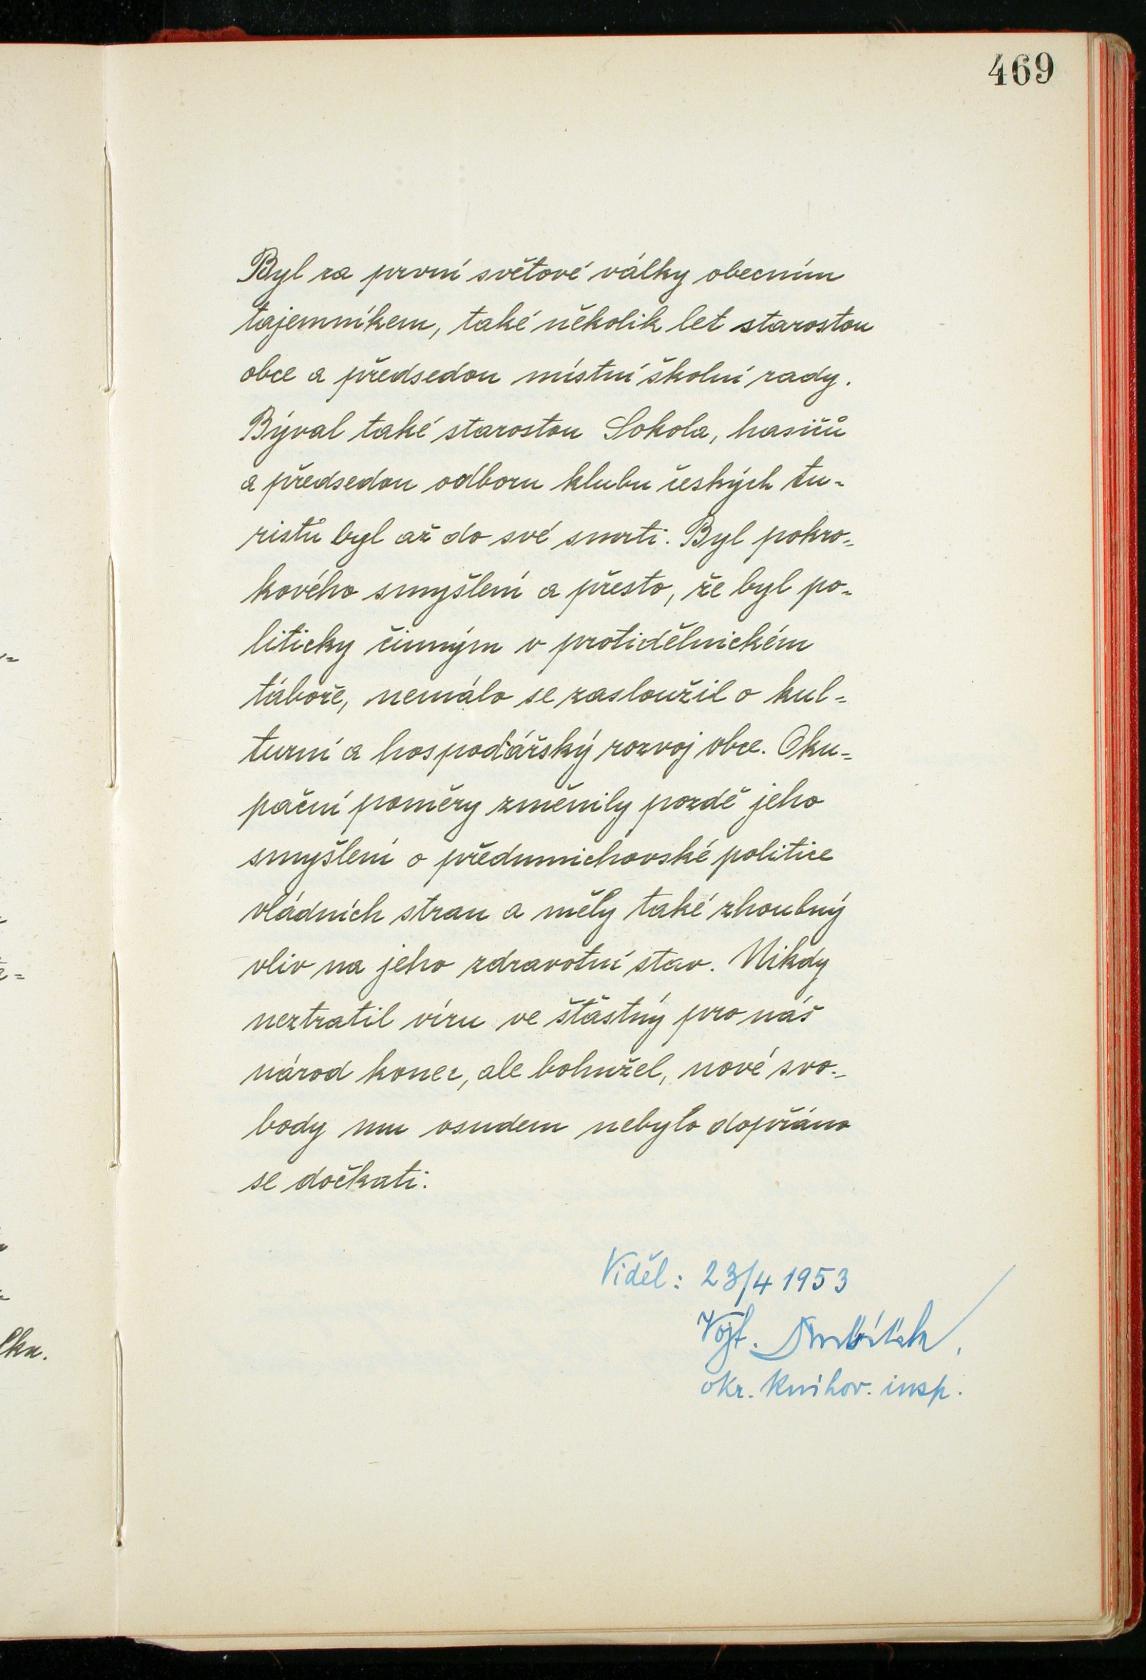 469
Byl za první světové války obecním
tajemníkem, také několik let starostou
obce a předsedou místní školní rady.
Býval také starostou Sokola, hasičů
a předsedou odboru klubu českých tu-
ristů byl až do své smrti. Byl pokro-
kového smyšlení a přesto, že byl po-
liticky činným v protidělnickém
táboře, nemálo se zasloužil o kul-
turní a hospodářský rozvoj obce. Oku-
pační poměry změnily pozdě jeho
smyšlení o předmnichovské politice
vládních stran a měly také zhoubný
vliv na jeho zdravotní stav. Nikdy
neztratil víru ve šťastný pro náš
národ konec, ale bohužel, nové svo-
body mu osudem nebylo dopřáno
se dočkati.
Viděl: 23/4 1953
Vojt.
okr. knihov. insp.
lku.